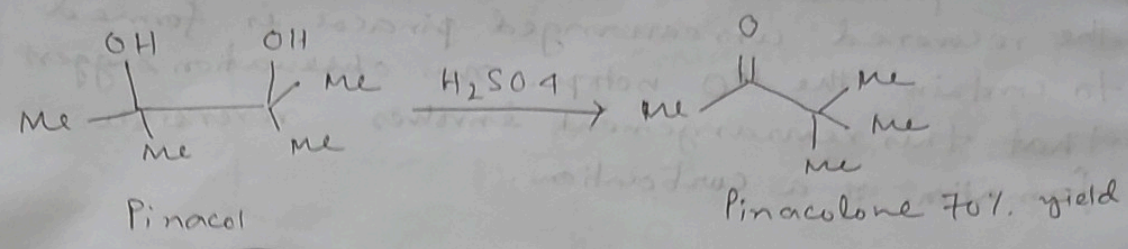 OH OH O
Me Me Me Me H2SO4 Me Me Me Me
Pinacol Pinacolone 70%. yield